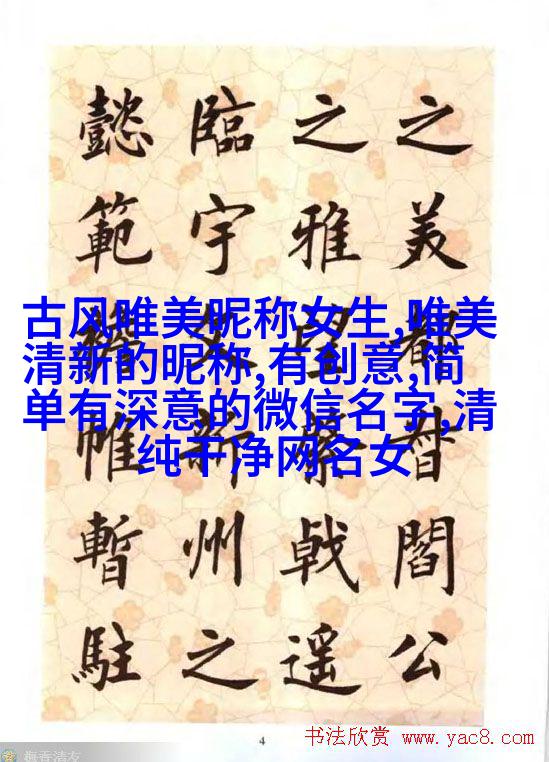 古风唯美昵称女生,唯美
清新的昵称,有创意,简
单有深意的微信名字,清
纯干净网名女
之美都督閻公
之雅望棨戟遥
臨宇文新州之
懿範襜帷暫駐
4
书法欣赏 www.yac8.com